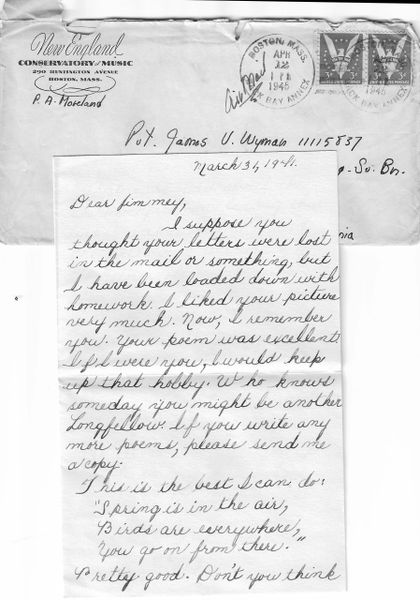 New England
CONSERVATORY OF MUSIC
290 HUNTINGTON AVENUE
BOSTON, MASS.
P. A. Moreland
BOSTON, MASS.
APR
12
1 PM
1945
BACK BAY ANNEX
Air Mail
1945
CK BAY ANNEX
Pvt. James V. Wyman 11115837
Sv. Bn.
nia
March 31, 194
Dear Jimmey,
I suppose you
thought your letters were lost
in the mail or something, but
I have been loaded down with
homework. I liked your picture
very much. Now, I remember
you. Your poem was excellent!
If I were you, I would keep
up that hobby. Who knows
someday you might be another
Longfellow. If you write any
more poems, please send me
a copy.
This is the best I can do:
"Spring is in the air,
Birds are everywhere,
You go on from there."
Pretty good. Don't you think